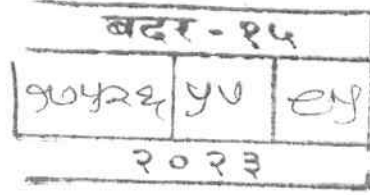 बदर - १५
१७५२६ ५७ ८५
२०२३